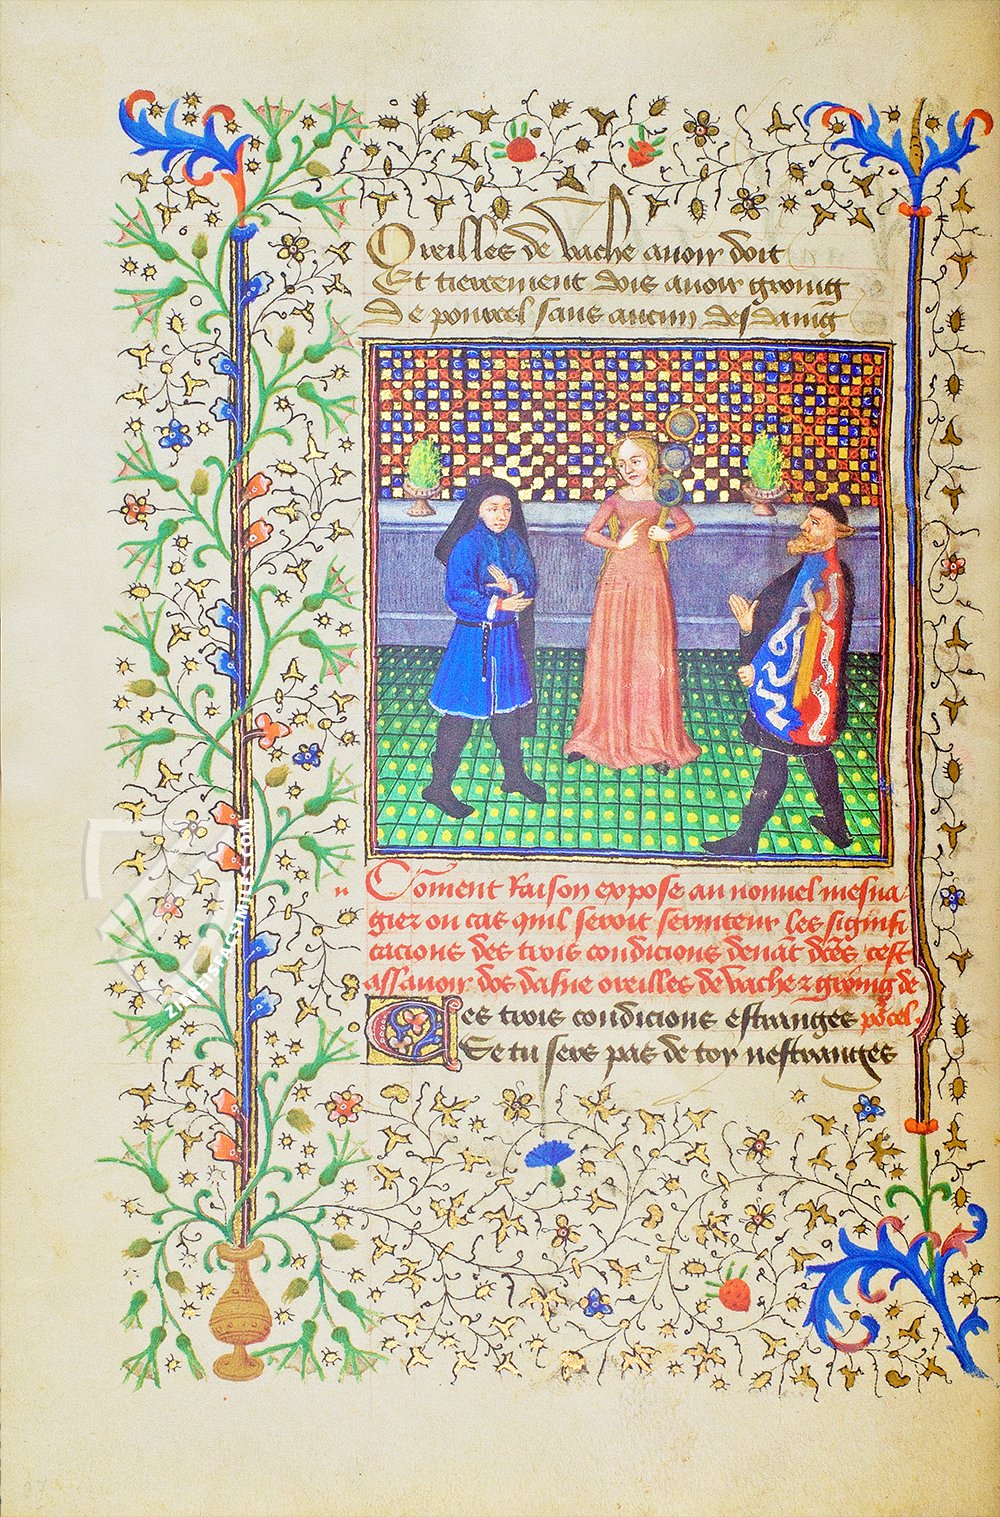 Oreilles de vache avoir doit
Et tiercement dois avoir groing
De pourcel sans aucun desdaing
Cōment Raison expose au nouuel mesna
gier ou cas quil seroit seruiteur les signifi
cacions des trois condicions deuāt dc̄es cest
assauoir dos dasne oreilles de vache ⁊ groing de
porcel.
Ces trois condicions estranges
Se tu sers pas de toy nestranges
ZIEREIS FACSIMILES.COM